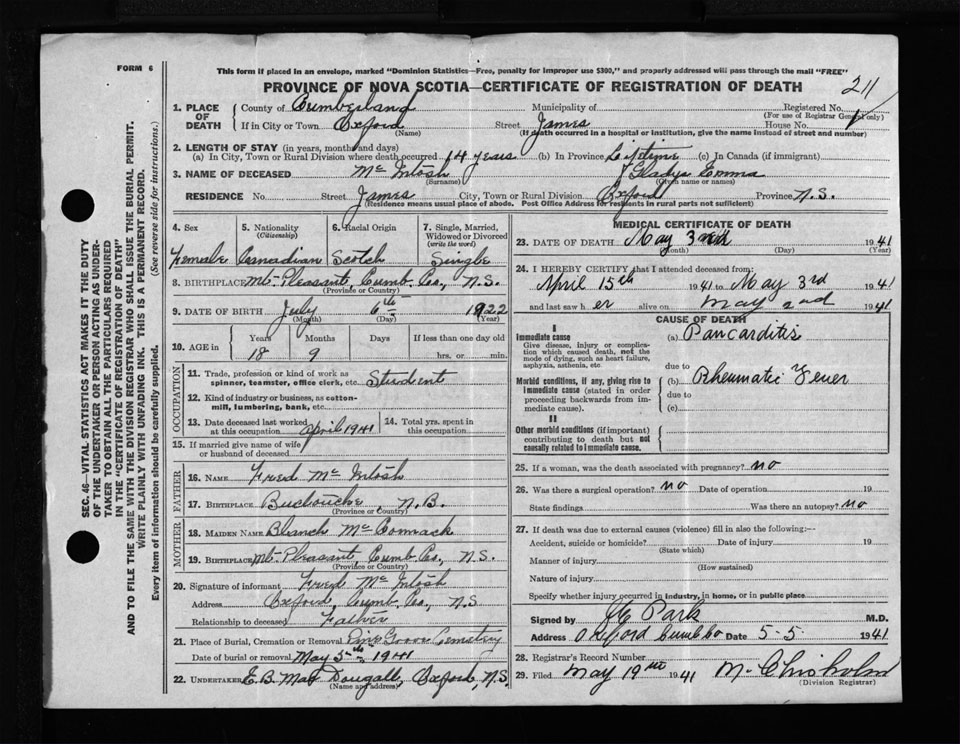 FORM 6
This form if placed in an envelope, marked "Dominion Statistics—Free, penalty for improper use $300," and properly addressed will pass through the mail "FREE"
PROVINCE OF NOVA SCOTIA—CERTIFICATE OF REGISTRATION OF DEATH
211
1. PLACE OF DEATH County of Cumberland Municipality of Registered No.
(For use of Registrar General only)
If in City or Town Oxford Street James House No.
(Name) (If death occurred in a hospital or institution, give the name instead of street and number)
2. LENGTH OF STAY (in years, months and days)
(a) In City, Town or Rural Division where death occurred 14 years (b) In Province Lifetime (c) In Canada (if immigrant)
3. NAME OF DECEASED Mc Intosh Gladys Emma
(Surname) (Given name or names)
RESIDENCE No. Street James City, Town or Rural Division Oxford Province N.S.
(Residence means usual place of abode. Post Office Address for residents in rural parts not sufficient)
4. Sex 5. Nationality (Citizenship) 6. Racial Origin 7. Single, Married, Widowed or Divorced (write the word)
Female Canadian Scotch Single
8. BIRTHPLACE Mt. Pleasant, Cumb. Co., N.S.
(Province or Country)
9. DATE OF BIRTH July 6th 1922
(Month) (Day) (Year)
10. AGE in Years Months Days If less than one day old
18 9 hrs. or min.
OCCUPATION
11. Trade, profession or kind of work as spinner, teamster, office clerk, etc. Student
12. Kind of industry or business, as cotton-mill, lumbering, bank, etc.
13. Date deceased last worked at this occupation April 1941 14. Total yrs. spent in this occupation
15. If married give name of wife or husband of deceased
FATHER
16. NAME Fred Mc Intosh
17. BIRTHPLACE Buctouche N.B.
(Province or Country)
MOTHER
18. MAIDEN NAME Blanch Mc Cormack
19. BIRTHPLACE Mt. Pleasant, Cumb. Co., N.S.
(Province or Country)
20. Signature of informant Fred Mc Intosh
Address Oxford, Cumb. Co., N.S
Relationship to deceased Father
21. Place of Burial, Cremation or Removal Pine Grove Cemetery
Date of burial or removal May 5th 1941
22. UNDERTAKER E.B. Mac Dougall, Oxford, N.S
(Name and address)
MEDICAL CERTIFICATE OF DEATH
23. DATE OF DEATH May 3rd 1941
(Month) (Day)
24. I HEREBY CERTIFY that I attended deceased from:
April 15th 1941 to May 3rd 1941
and last saw h er alive on May 2nd 1941
CAUSE OF DEATH
I
Immediate cause (a) Pancarditis
Give disease, injury or complication which caused death, not the mode of dying, such as heart failure, asphyxia, asthenia, etc.
due to
Morbid conditions, if any, giving rise to immediate cause (stated in order proceeding backwards from immediate cause). (b) Rheumatic Fever
due to
(c)
II
Other morbid conditions (if important) contributing to death but not causally related to immediate cause.
25. If a woman, was the death associated with pregnancy? no
26. Was there a surgical operation? no Date of operation 19
State findings Was there an autopsy? no
27. If death was due to external causes (violence) fill in also the following:—
Accident, suicide or homicide? Date of injury 19
(State which)
Manner of injury
(How sustained)
Nature of injury
Specify whether injury occurred in industry, in home, or in public place
Signed by Park M.D.
Address Oxford Cumb Co Date 5-5 1941
28. Registrar's Record Number
29. Filed May 19th 1941 M. Chisholm
(Division Registrar)
SEC. 46—VITAL STATISTICS ACT MAKES IT THE DUTY
OF THE UNDERTAKER OR PERSON ACTING AS UNDER-
TAKER TO OBTAIN ALL THE PARTICULARS REQUIRED
IN THE "CERTIFICATE OF REGISTRATION OF DEATH"
AND TO FILE THE SAME WITH THE DIVISION REGISTRAR WHO SHALL ISSUE THE BURIAL PERMIT.
WRITE PLAINLY WITH UNFADING INK. THIS IS A PERMANENT RECORD.
Every item of information should be carefully supplied. (See reverse side for instructions.)